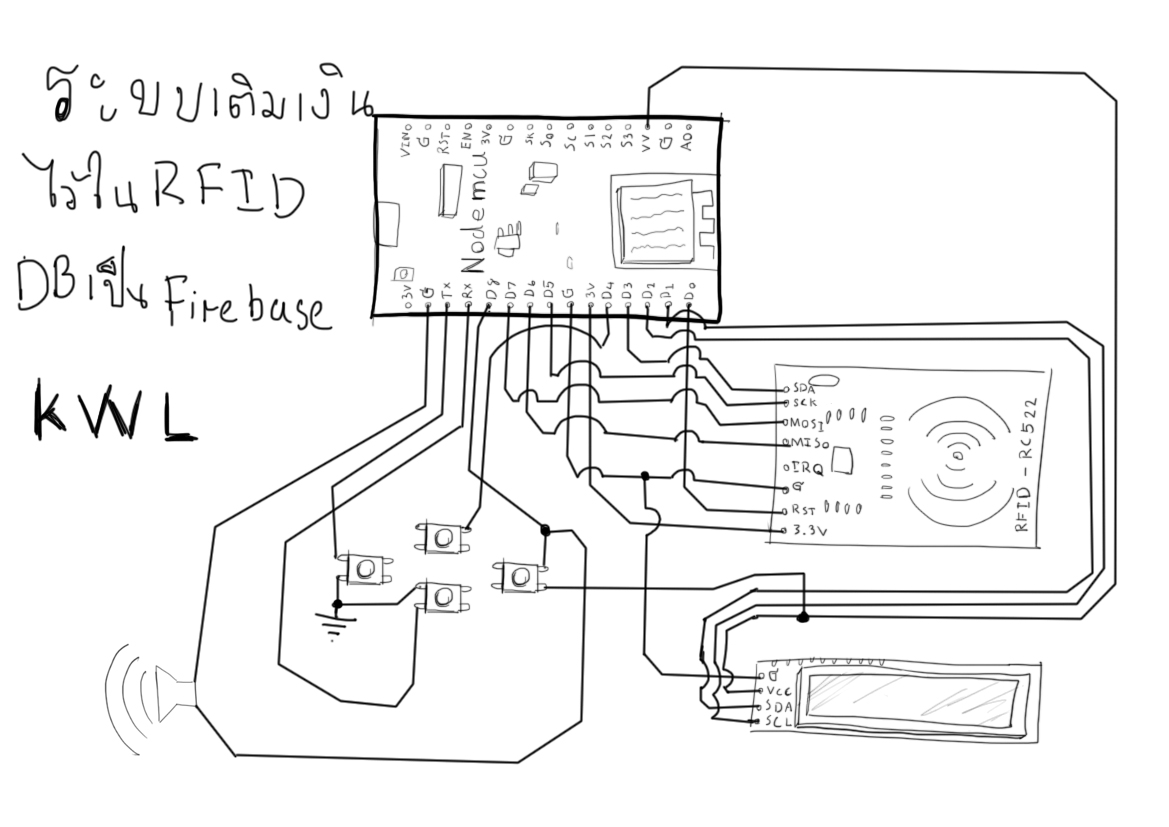 ระบบเติมเงิน
ไว้ใน RFID
DB เป็น Firebase
KWL
VIN G RST EN 3V G SK S0 SC S1 S2 S3 VV G A0
Nodemcu
3V G Tx Rx D8 D7 D6 D5 G 3V D4 D3 D2 D1 D0
SDA
SCK
MOSI
MISO
IRQ
G
RST
3.3V
RFID-RC522
G
VCC
SDA
SCL